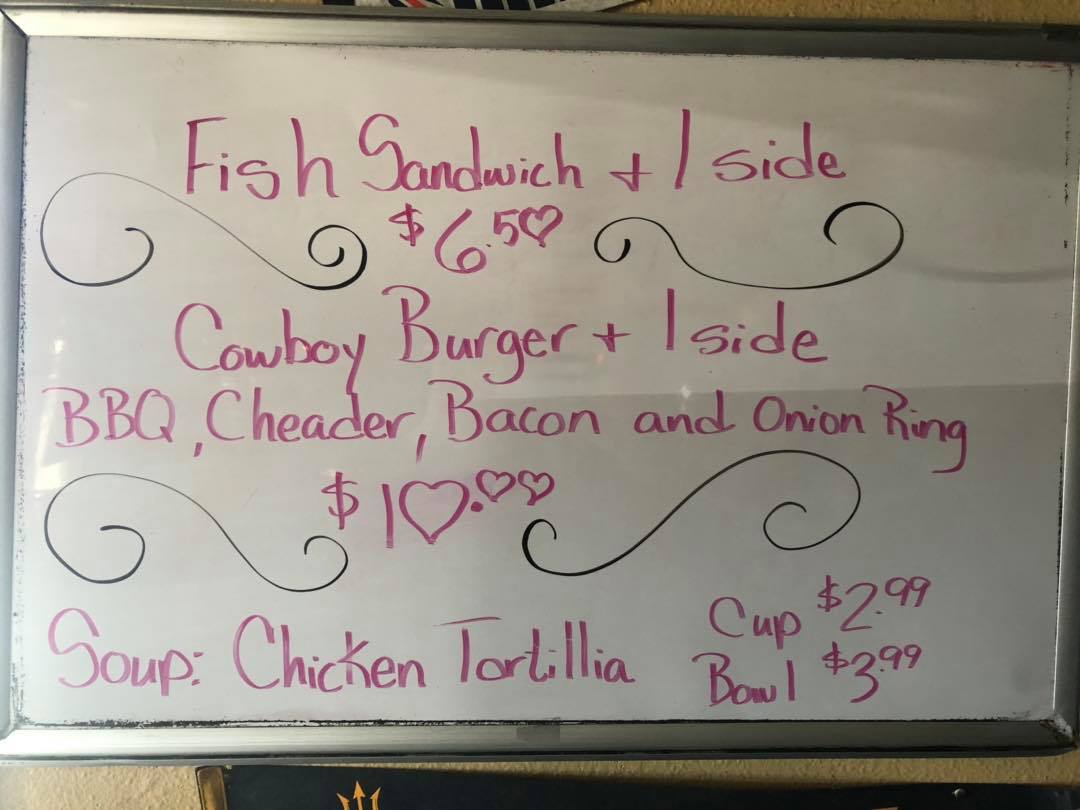 Fish Sandwich + 1 side
$6.50
Cowboy Burger + 1 side
BBQ, Cheader, Bacon and Onion Ring
$10.00
Soup: Chicken Tortillia
Cup $2.99
Bowl $3.99